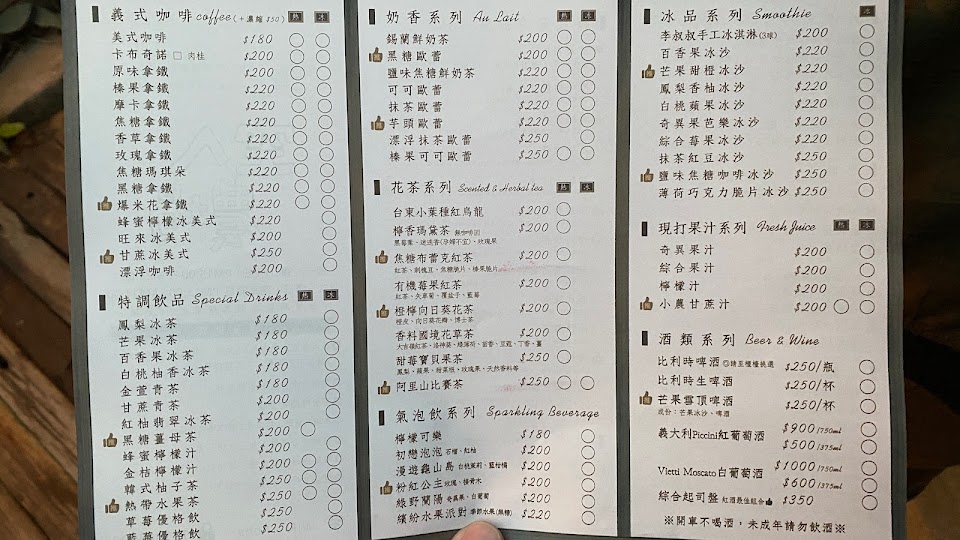 義式咖啡 coffee (+濃縮 $50) 熱 冰
美式咖啡 $180
卡布奇諾 □ 肉桂 $200
原味拿鐵 $200
榛果拿鐵 $220
摩卡拿鐵 $220
焦糖拿鐵 $220
香草拿鐵 $220
玫瑰拿鐵 $220
焦糖瑪琪朵 $220
黑糖拿鐵 $220
爆米花拿鐵 $220
蜂蜜檸檬冰美式 $220
旺來冰美式 $200
甘蔗冰美式 $250
漂浮咖啡 $200
特調飲品 Special Drinks 熱 冰
鳳梨冰茶 $180
芒果冰茶 $180
百香果冰茶 $180
白桃柚香冰茶 $180
金萱青茶 $180
甘蔗青茶 $200
紅柚翡翠冰茶 $200
黑糖薑母茶 $200
蜂蜜檸檬汁 $200
金桔檸檬汁 $200
韓式柚子茶 $250
熱帶水果茶 $250
草莓優格飲 $250
藍莓優格飲 $250
奶香系列 Au Lait 熱 冰
錫蘭鮮奶茶 $200
黑糖歐蕾 $200
鹽味焦糖鮮奶茶 $220
可可歐蕾 $220
抹茶歐蕾 $220
芋頭歐蕾 $220
漂浮抹茶歐蕾 $250
榛果可可歐蕾 $250
花茶系列 Scented & Herbal tea 熱 冰
台東小葉種紅烏龍 $200
檸香瑪黛茶 無咖啡因 $200
黑莓葉、迷迭香(孕婦不宜)、玫瑰果
焦糖布蕾克紅茶 $200
紅茶、刺槐豆、焦糖脆片、榛果脆片
有機莓果紅茶 $200
紅茶、矢車菊、覆盆子、藍莓
橙檸向日葵花茶 $200
橙皮、向日葵花瓣、博士茶
香料國境花草茶 $200
大吉嶺紅茶、洛神葵、綠薄荷、茴香、豆蔻、丁香、薑
甜莓寶貝果茶 $250
鳳梨、蘋果、甜菜根、玫瑰果、天然香料等
阿里山比賽茶 $250
氣泡飲系列 Sparkling Beverage
檸檬可樂 $180
初戀泡泡 石榴、紅柚 $200
漫遊龜山島 白桃茉莉、藍柑橘 $200
粉紅公主 玫瑰、接骨木 $200
綠野蘭陽 奇異果、白葡萄 $200
繽紛水果派對 季節水果(無糖) $220
冰品系列 Smoothie 冰
李叔叔手工冰淇淋(3球) $200
百香果冰沙 $220
芒果甜橙冰沙 $220
鳳梨香柚冰沙 $220
白桃蘋果冰沙 $220
奇異果芭樂冰沙 $220
綜合莓果冰沙 $220
抹茶紅豆冰沙 $250
鹽味焦糖咖啡冰沙 $250
薄荷巧克力脆片冰沙 $250
現打果汁系列 Fresh Juice 熱 冰
奇異果汁 $200
綜合果汁 $200
檸檬汁 $200
小農甘蔗汁 $200
酒類系列 Beer & Wine
比利時啤酒 ◎請至檯檯挑選 $250/瓶
比利時生啤酒 $250/杯
芒果雪頂啤酒 $250/杯
成份：芒果冰沙、啤酒
義大利Piccini紅葡萄酒 $900/750ml
$500/375ml
Vietti Moscato白葡萄酒 $1000/750ml
$600/375ml
綜合起司盤 紅酒最佳組合 $350
※開車不喝酒，未成年請勿飲酒※